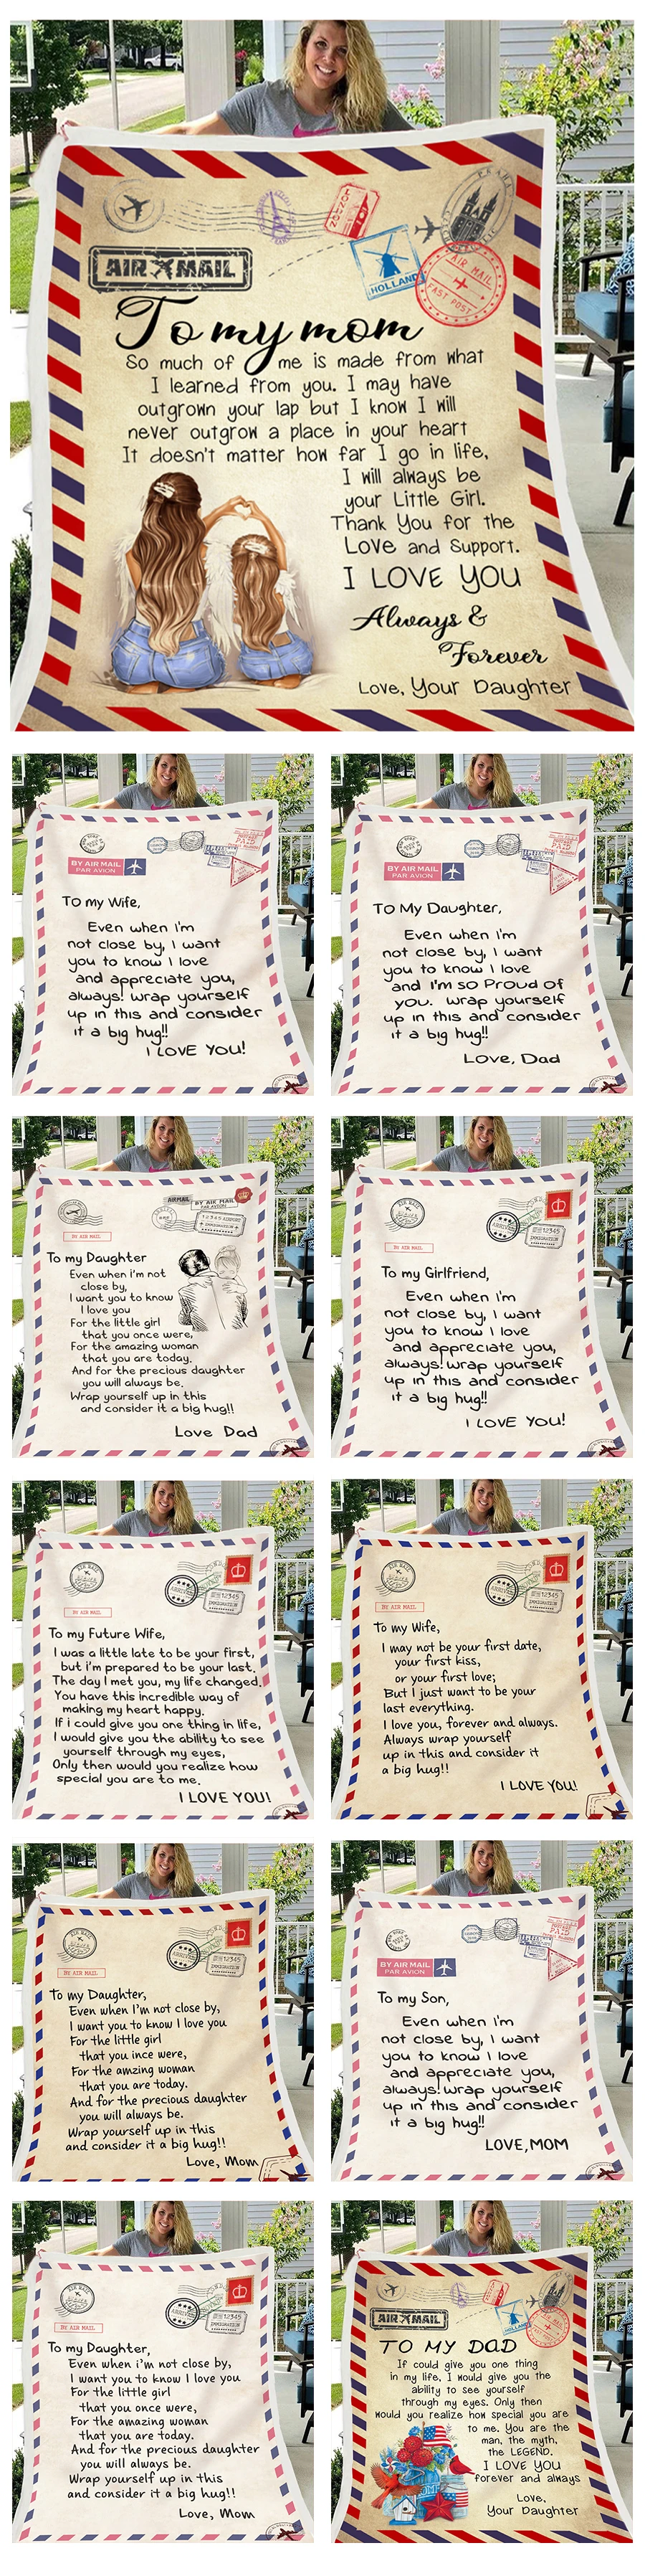 PRAHA
LONDON
AIR MAIL
HOLLAND
AIR MAIL
FAST POST
To my mom
So much of me is made from what
I learned from you. I may have
outgrown your lap but I know I will
never outgrow a place in your heart
It doesn't matter how far I go in life,
I will always be
your Little Girl.
Thank You for the
Love and Support.
I LOVE YOU
Always &
Forever
Love, Your Daughter
BY AIR MAIL
PAR AVION
PAID
To my Wife,
Even when i'm
not close by, I want
you to know I love
and appreciate you,
always! wrap yourself
up in this and consider
it a big hug!!
I LOVE YOU!
BY AIR MAIL
PAR AVION
PAID
To My Daughter,
Even when i'm
not close by, I want
you to know I love
and I'm so Proud of
you. wrap yourself
up in this and consider
it a big hug!!
Love, Dad
AIRMAIL
BY AIR MAIL
PAR AVION
12345 AIRPORT
IMMIGRATION
BY AIR MAIL
To my Daughter
Even when i'm not
close by,
I want you to know
I love you
For the little girl
that you once were,
For the amazing woman
that you are today.
And for the precious daughter
you will always be.
Wrap yourself up in this
and consider it a big hug!!
Love Dad
AIR MAIL
ARRIVED
12345
IMMIGRATION
BY AIR MAIL
To my Girlfriend,
Even when i'm
not close by, I want
you to know I love
and appreciate you,
always! wrap yourself
up in this and consider
it a big hug!!
I LOVE YOU!
AIR MAIL
ARRIVED
12345
IMMIGRATION
BY AIR MAIL
To my Future Wife,
I was a little late to be your first,
but i'm prepared to be your last.
The day I met you, my life changed.
You have this incredible way of
making my heart happy.
If i could give you one thing in life,
I would give you the ability to see
yourself through my eyes,
Only then would you realize how
special you are to me.
I LOVE YOU!
AIR MAIL
ARRIVED
12345
IMMIGRATION
BY AIR MAIL
To my Wife,
I may not be your first date,
your first kiss,
or your first love;
But I just want to be your
last everything.
I love you, forever and always.
Always wrap yourself
up in this and consider it
a big hug!!
I LOVE YOU!
AIR MAIL
ARRIVED
12345
IMMIGRATION
BY AIR MAIL
To my Daughter,
Even when I'm not close by,
I want you to know I love you
For the little girl
that you ince were,
For the amzing woman
that you are today.
And for the precious daughter
you will always be.
Wrap yourself up in this
and consider it a big hug!!
Love, Mom
BY AIR MAIL
PAR AVION
PAID
To my Son,
Even when i'm
not close by, I want
you to know I love
and appreciate you,
always! wrap yourself
up in this and consider
it a big hug!!
LOVE,MOM
AIR MAIL
ARRIVED
12345
IMMIGRATION
BY AIR MAIL
To my Daughter,
Even when i'm not close by,
I want you to know I love you
For the little girl
that you once were,
For the amazing woman
that you are today.
And for the precious daughter
you will always be.
Wrap yourself up in this
and consider it a big hug!!
Love, Mom
AIR MAIL
HOLLAND
AIR MAIL
FAST POST
TO MY DAD
If could give you one thing
in my life, I would give you the
ability to see yourself
through my eyes. Only then
would you realize how special you are
to me. You are the
man, the myth,
the LEGEND.
I LOVE YOU
forever and always
Love,
Your Daughter